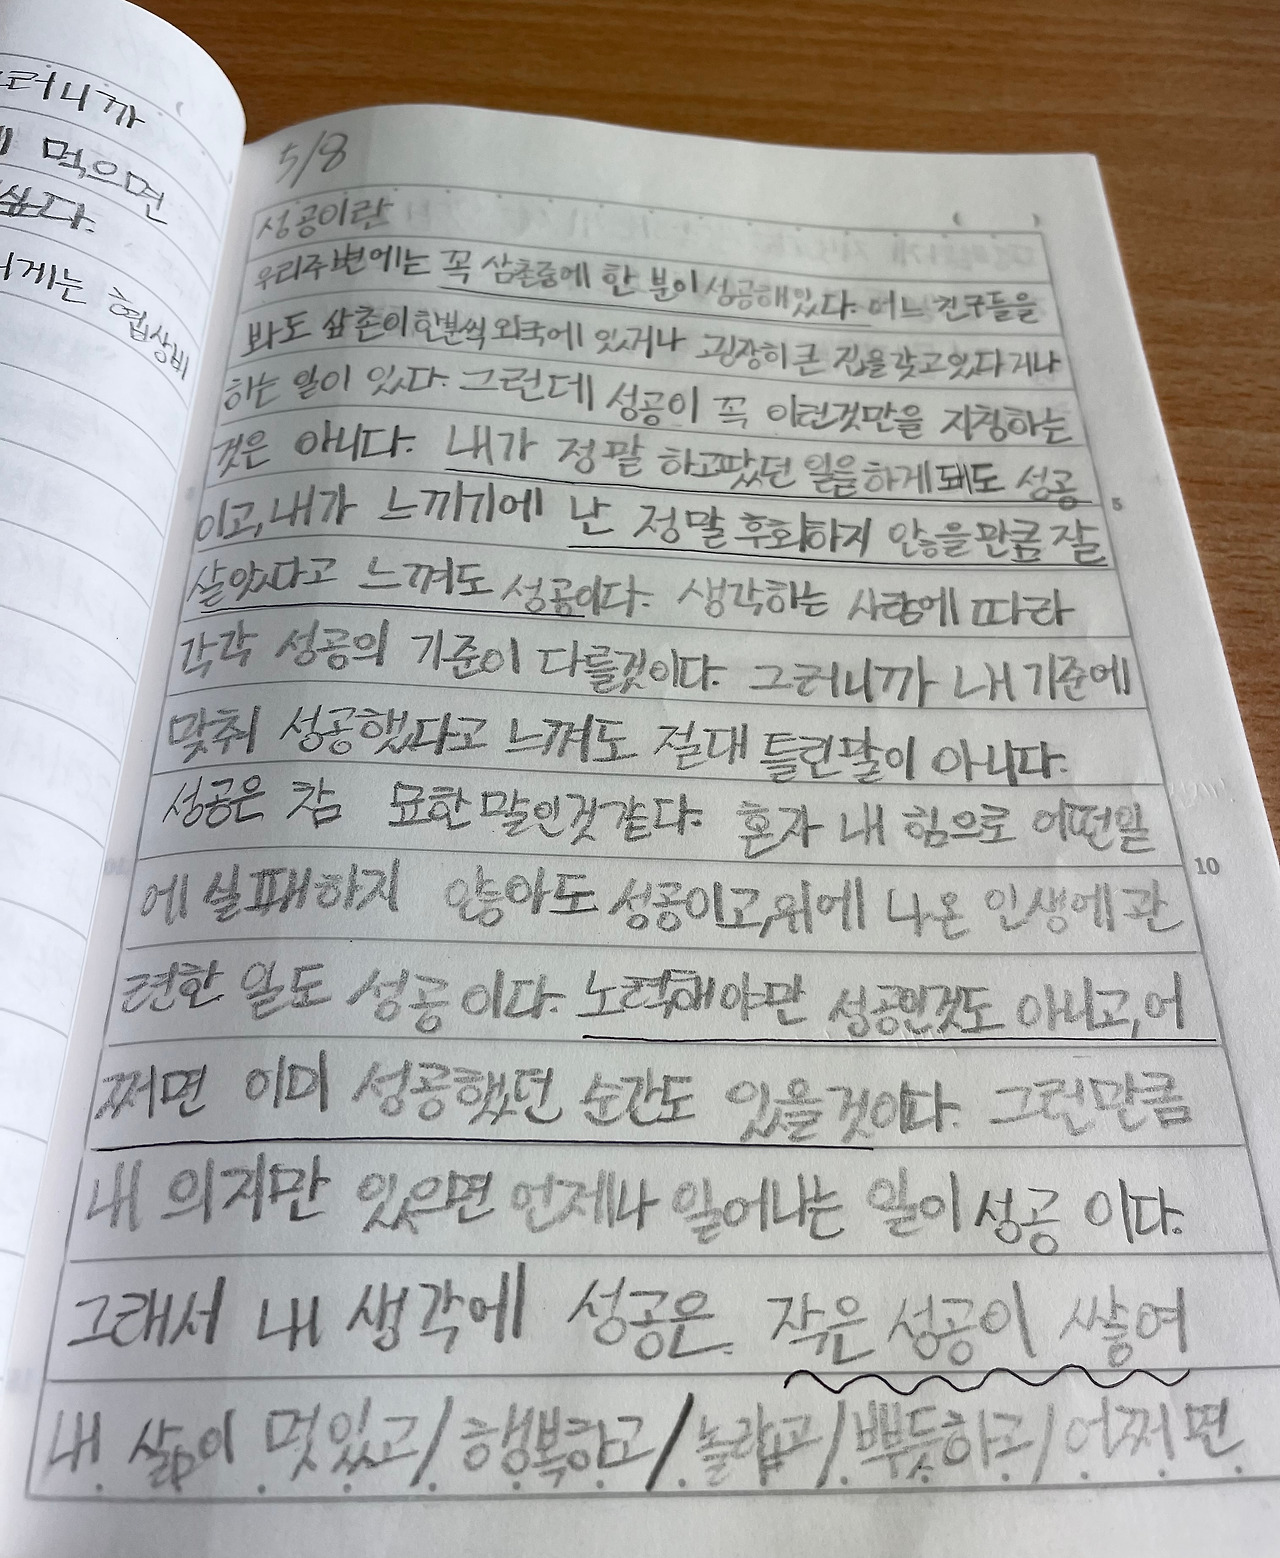 러니까
먹으면
싶다.
게는 협상비
5/8
성공이란
우리주변에는 꼭 삼촌중에 한 분이 성공해있다. 어느 친구들을
봐도 삼촌이 한분씩 외국에 있거나 굉장히 큰 집을 갖고있다거나
하는 일이 있다. 그런데 성공이 꼭 이런것만을 지칭하는
것은 아니다. 내가 정말 하고팠던 일을 하게돼도 성공
이고, 내가 느끼기에 난 정말 후회하지 않을만큼 잘
살았다고 느껴도 성공이다. 생각하는 사람에 따라
각각 성공의 기준이 다를것이다. 그러니까 내 기준에
맞춰 성공했다고 느껴도 절대 틀린말이 아니다.
성공은 참 묘한 말인것 같다. 혼자 내 힘으로 어떤일
에 실패하지 않아도 성공이고, 위에 나온 인생에 관
련한 일도 성공이다. 노력해야만 성공인것도 아니고, 어
쩌면 이미 성공했던 순간도 있을것이다. 그런만큼
내 의지만 있으면 언제나 일어나는 일이 성공 이다.
그래서 내 생각에 성공은 작은 성공이 쌓여
내 삶이 멋있고/행복하고/놀랍고/뿌듯하고/어쩌면
10